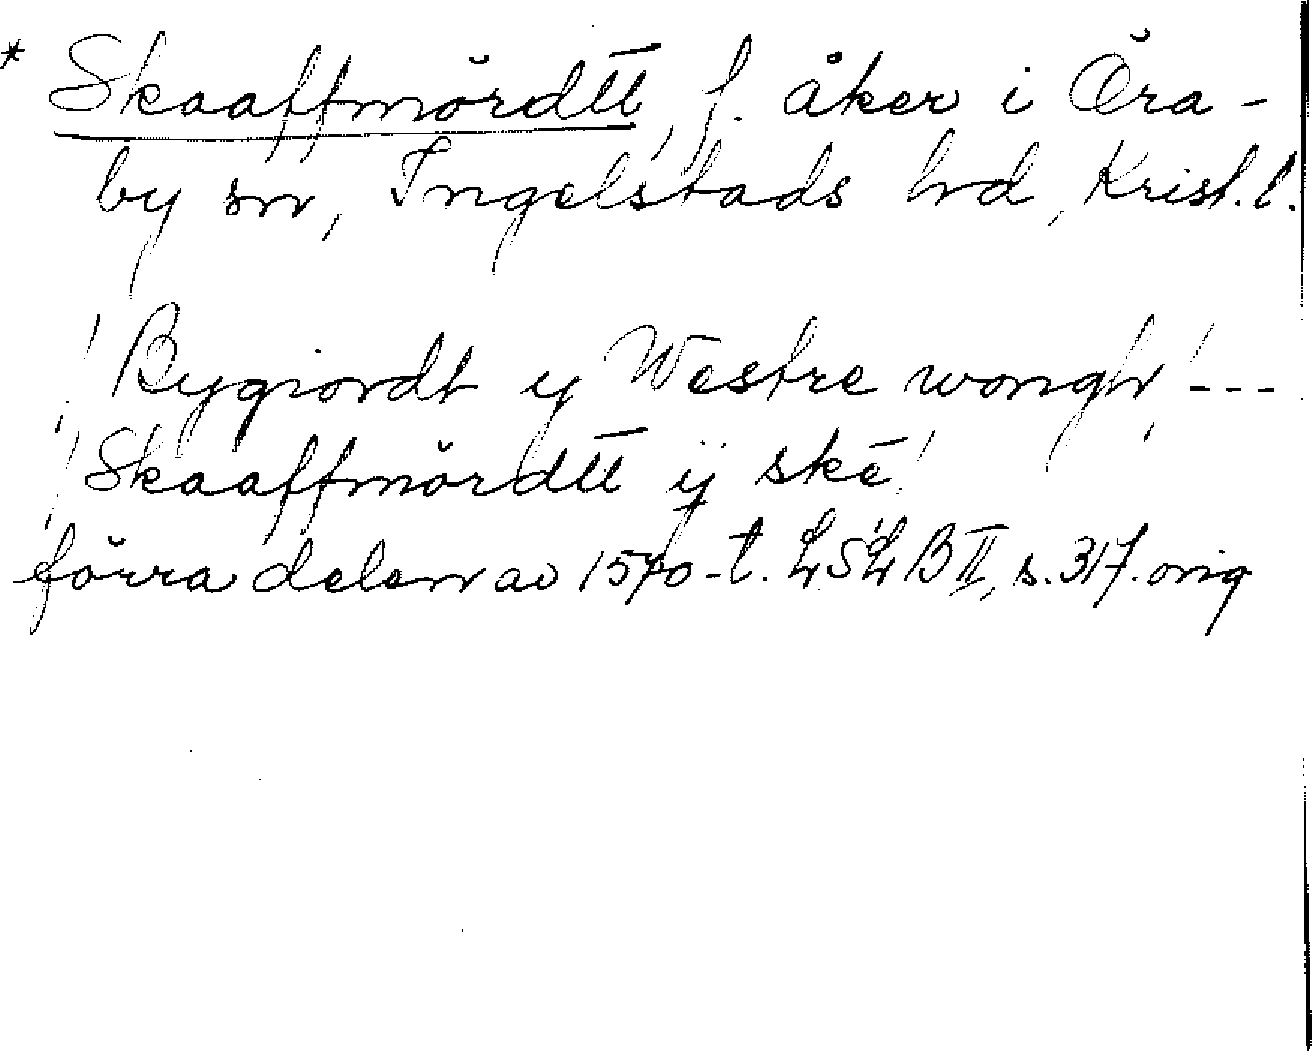 * Skaaffmördt̄t̄, f. åker i Öra-
by sn, Ingelstads hd, Krist. l.
! Bygiordt y Westre wongh, ! ---
! Skaaffmördt̄t̄ ÿ skē !
förra delen av 1570-t. LSLB II, s. 317. orig